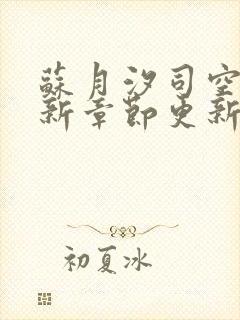 蘇月汐司空
新章節更新
初夏冰